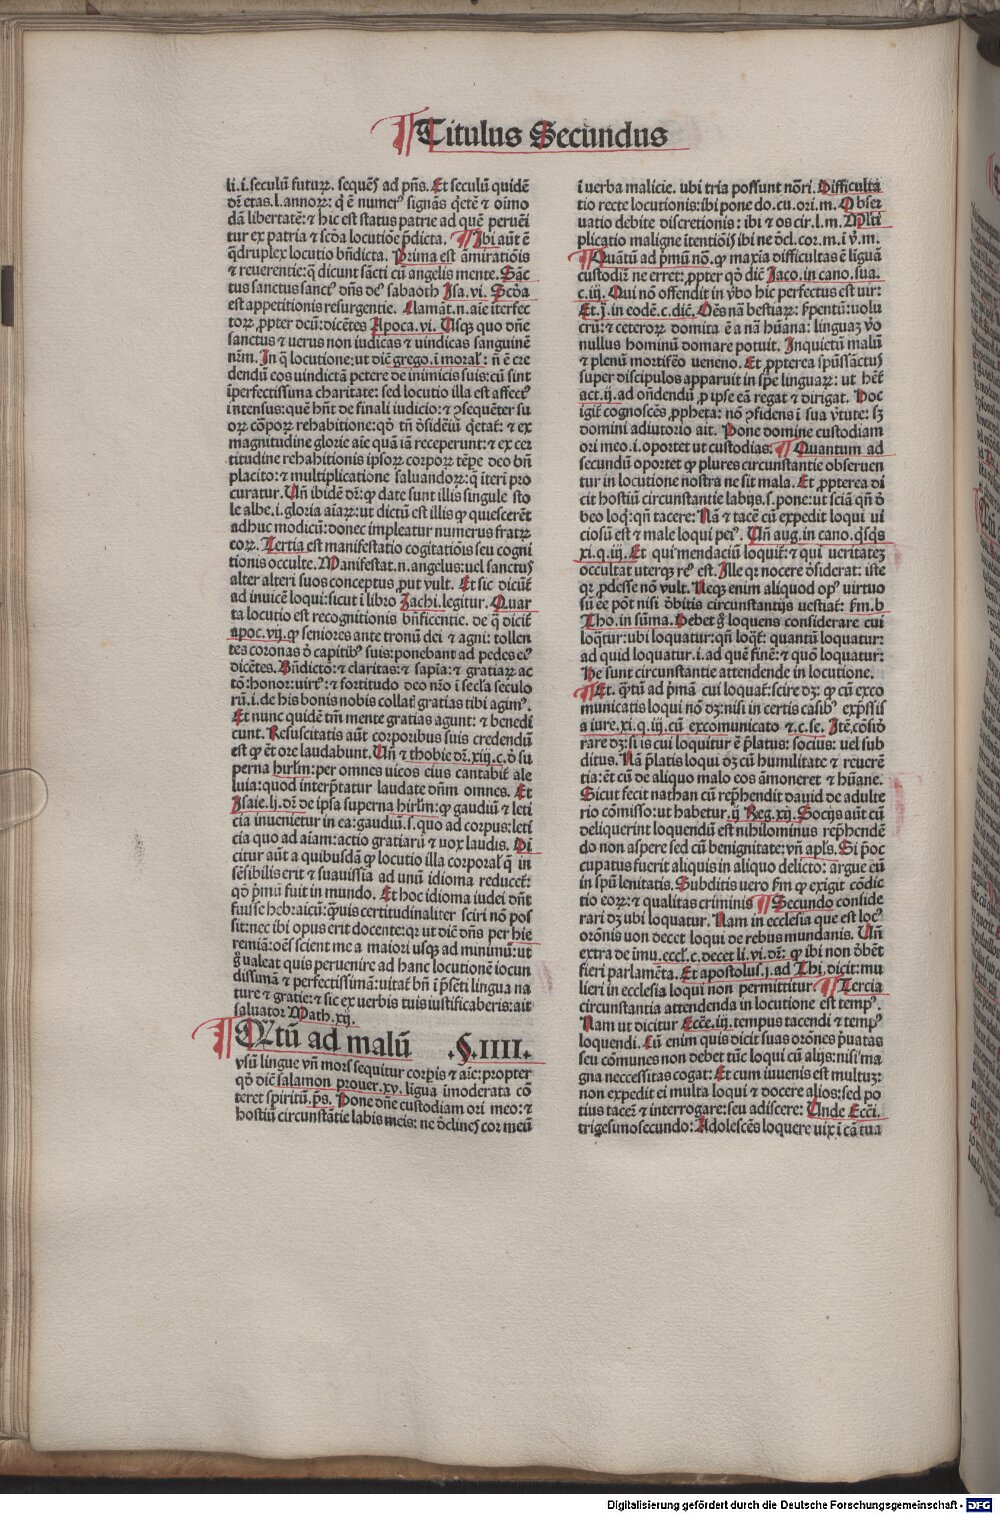 Titulus Secundus
li.i.seculū futurꝝ. sequēs ad pn̄s. Et seculū quidē
dr̄ etas.l.annorꝝ: q̄ ē numerꝰ signās q̄etē ⁊ oīmo
dā libertatē: ⁊ hic est status patrie ad quē peruēi
tur ex patria ⁊ scd̄a locutiōe p̄dicta. ¶ Ibi aūt ē
q̄druplex locutio bn̄dicta. Prima est amiratiōis
⁊ reuerentie: q̄ dicunt sācti cū angelis mente. Sāc
tus sanctus sanctꝰ dn̄s deꝰ sabaoth Isa.vi. Scd̄a
est appetitionis resurgentie. Clamāt.n.aīe īterfec
torꝝ ꝓpter deū: dicētes Apoca.vi. Usqꝫ quo dn̄e
sanctus ⁊ uerus non iudicas ⁊ uindicas sanguinē
nr̄m. In q̄ locutione: ut diē grego.ī moral': n̄ ē cre
dendū eos uindictā petere de inimicis suis: cū sint
īperfectissima charitate: sed locutio illa est affectꝰ
intensus: quē hn̄t de finali iudicio: ⁊ ꝯsequēter su
orꝝ corꝑorꝝ rehabitione: qd̄ tn̄ ꝺsidēiū q̄etat̄: ⁊ ex
magnitudine glorie aīe quā iā receperunt: ⁊ ex cer
titudine rehabitionis ipsorꝝ corporꝝ tēpe deo bn̄
placito: ⁊ multiplicatione saluandorꝝ: q̄ īteri pro
curatur. Un̄ ibidē dr̄: ꝙ date sunt illis singule sto
le albe.i.gloria aīarꝝ: ut dictū est illis ꝙ quiescerēt
adhuc modicū: donec impleatur numerus fratrꝝ
eorꝝ. Tertia est manifestatio cogitatiōis seu cogni
tionis occulte. Manifestat.n.angelus: uel sanctus
alter alteri suos conceptus ꝓut vult. Et sic dicūt̄
ad inuicē loqui: sicut ī libro Zachi.legitur. Quar
ta locutio est recognitionis bn̄ficentie. de q̄ dicit̄
apoc.vij.ꝙ seniores ante tronū dei ⁊ agni: tollen
tes coronas ꝺ capitibꝰ suis: ponebant ad pedes eiꝰ
dicētes. Bn̄dictō: ⁊ claritas: ⁊ sapīa: ⁊ gratiarꝝ ac
tō: honor: uirtꝰ: ⁊ fortitudo deo nr̄o ī secl'a seculo
rū.i.de his bonis nobis collat̄ gratias tibi agimꝰ.
Et nunc quidē tm̄ mente gratias agunt: ⁊ benedi
cunt. Resuscitatis aūt corporibus suis credendū
est ꝙ ēt ore laudabunt. Un̄ ⁊ thobie dr̄.xiij.c.ꝺ su
perna hirl'm: per omnes uicos eius cantabit̄ ale
luia: quod interp̄tatur laudate dn̄m omnes. Et
Isaie.lj.dr̄ de ipsa superna hirl'm: ꝙ gaudiū ⁊ leti
cia inuenietur in ea: gaudiū.s.quo ad corpus: leti
cia quo ad aīam: actio gratiarū ⁊ uox laudis. Di
citur aūt a quibusdā ꝙ locutio illa corporal' q̄ in
sēsibilis erit ⁊ suauissīa ad unū idioma reducet̄:
qd̄ p̄mū fuit in mundo. Et hoc idioma iudei dn̄t
fuisse hebraicū: q̄uis certitudinaliter sciri nō pos
sit: nec ibi opus erit docente: qꝛ ut diē dn̄s per hie
remiā: oēs scient me a maiori usqꝫ ad minimū: ut
ḡ ualeat quis peruenire ad hanc locutionē iocun
dissimā ⁊ perfectissimā: uitat̄ bn̄ ī p̄sēti lingua na
ture ⁊ gratie: ⁊ sic ex uerbis tuis iustificaberis: ait
saluator Math.xij.
¶ Qꝛtū ad malū .§.IIII.
vsū lingue vn̄ mors sequitur corp̄is ⁊ aīe: propter
qd̄ diē salamon prouer.xv. līgua īmoderata cō
teret spiritū. p̄s. Pone dn̄e custodiam ori meo: ⁊
hostiū circunstātie labis meis: ne ꝺclines cor meū
ī uerba malicie. ubi tria possunt nōri. Difficulta
tio recte locutionis: ibi pone do.cu.ori.m. Obser
uatio debite discretionis: ibi ⁊ os cir.l.m. Mlti
plicatio maligne itentiōis ibi ne ꝺcl.cor.m.ī v̄.m.
¶ Quātū ad p̄mū nō. ꝙ maxīa difficultas ē līguā
custodiū ne erret: ꝓpter qd̄ diē Jaco.in cano.sua.
c.iij. Qui nō offendit in v̄bo hic perfectus est uir:
Et.j.in eodē.c.diē. Oēs nā bestiarꝝ: s̄pentū: uolu
crū: ⁊ ceterorꝝ domita ē a nā hūana: linguaꝫ v̄o
nullus hominū domare potuit. Inquietū malū
⁊ plenū mortifēo ueneno. Et ꝓpterea spūssāctus
super discipulos apparuit in sp̄e linguarꝝ: ut het̄
act.ij.ad on̄dendū ꝓ ipse eā regat ⁊ dirigat. Hoc
igit̄ cognoscēs ꝓpheta: nō ꝯfidens ī sua v̄tute: sꝫ
domini adiutorio ait. Pone domine custodiam
ori meo.i.oportet ut custodias. ¶ Quantum ad
secundū oportet ꝙ plures circunstantie obseruen
tur in locutione nostra ne sit mala. Et ꝓpterea di
cit hostiū circunstantie labijs.s.pone: ut sciā qn̄ ꝺ
beo loq̄: qn̄ tacere: Nā ⁊ tacē cū expedit loqui ui
ciosū est ⁊ male loqui peiꝰ. Un̄ aug.in cano.q̄sq̄s
xi.q.iij. Et qui mendaciū loquit̄: ⁊ qui ueritateꝫ
occultat uterqꝫ reꝰ est. Ille qꝛ nocere ꝺsiderat: iste
qꝛ ꝓdesse nō vult. Neqꝫ enim aliquod opꝰ virtuo
sū eē pōt nisi ꝺbitis circunstantijs uestiat̄: s̄m.b
Tho.in sūma. Debet ḡ loquens considerare cui
loq̄tur: ubi loquatur: qn̄ loq̄t̄: quantū loquatur:
ad quid loquatur.i.ad quē finē: ⁊ quō loquatur:
He sunt circunstantie attendende in locutione.
¶ Et. q̄tū ad p̄mā cui loquat̄: scire dꝫ: ꝙ cū exco
municatis loqui nō dꝫ: nisi in certis casibꝰ exp̄ssis
a iure.xi.q.iij.cū excomunicato ⁊.c.se. Itē, cōsiꝺ
rare dꝫ: si is cui loquitur ē p̄latus: socius: uel sub
ditus. Nā p̄latis loqui ꝺꝫ cū humilitate ⁊ reuerē
tia: ēt cū de aliquo malo eos āmoneret ⁊ hūane.
Sicut fecit nathan cū rep̄hendit dauid de adulte
rio cōmisso: ut habetur.ij Reg.xij. Socijs aūt cū
deliquerint loquendū est nihilominus rep̄hendē
do non aspere sed cū benignitate: vn̄ apl's. Si p̄oc
cupatus fuerit aliquis in aliquo delicto: argue eū
in spū lenitatis. Subditis uero s̄m ꝙ exigit cōdic
tio eorꝝ: ⁊ qualitas criminis ¶ Secundo conside
rari dꝫ ubi loquatur. Nam in ecclesia que est locꝰ
orōnis non decet loqui de rebus mundanis. Un̄
extra de īmu.eccl'.c.decet li.vi.dr̄: ꝙ ibi non ꝺbēt
fieri parlamēta. Et apostolus.j.ad Thi.dicit: mu
lieri in ecclesia loqui non permittitur. ¶ Tercia
circunstantia attendenda in locutione est tempꝰ.
Nam ut dicitur Ecc̄e.iij.tempus tacendi ⁊ tempꝰ
loquendi. Cū enim quis dicit suas orōnes p̄uatas
seu cōmunes non debet tūc loqui cū alijs: nisi ma
gna neccessitas cogat: Et cum iuuenis est multuꝫ:
non expedit ei multa loqui ⁊ docere alios: sed po
tius tacere ⁊ interrogare: seu adiscere: Unde Ecci.
trigesimosecundo: Adolescēs loquere uix ī cā tua
Digitalisierung gefördert durch die Deutsche Forschungsgemeinschaft - DFG